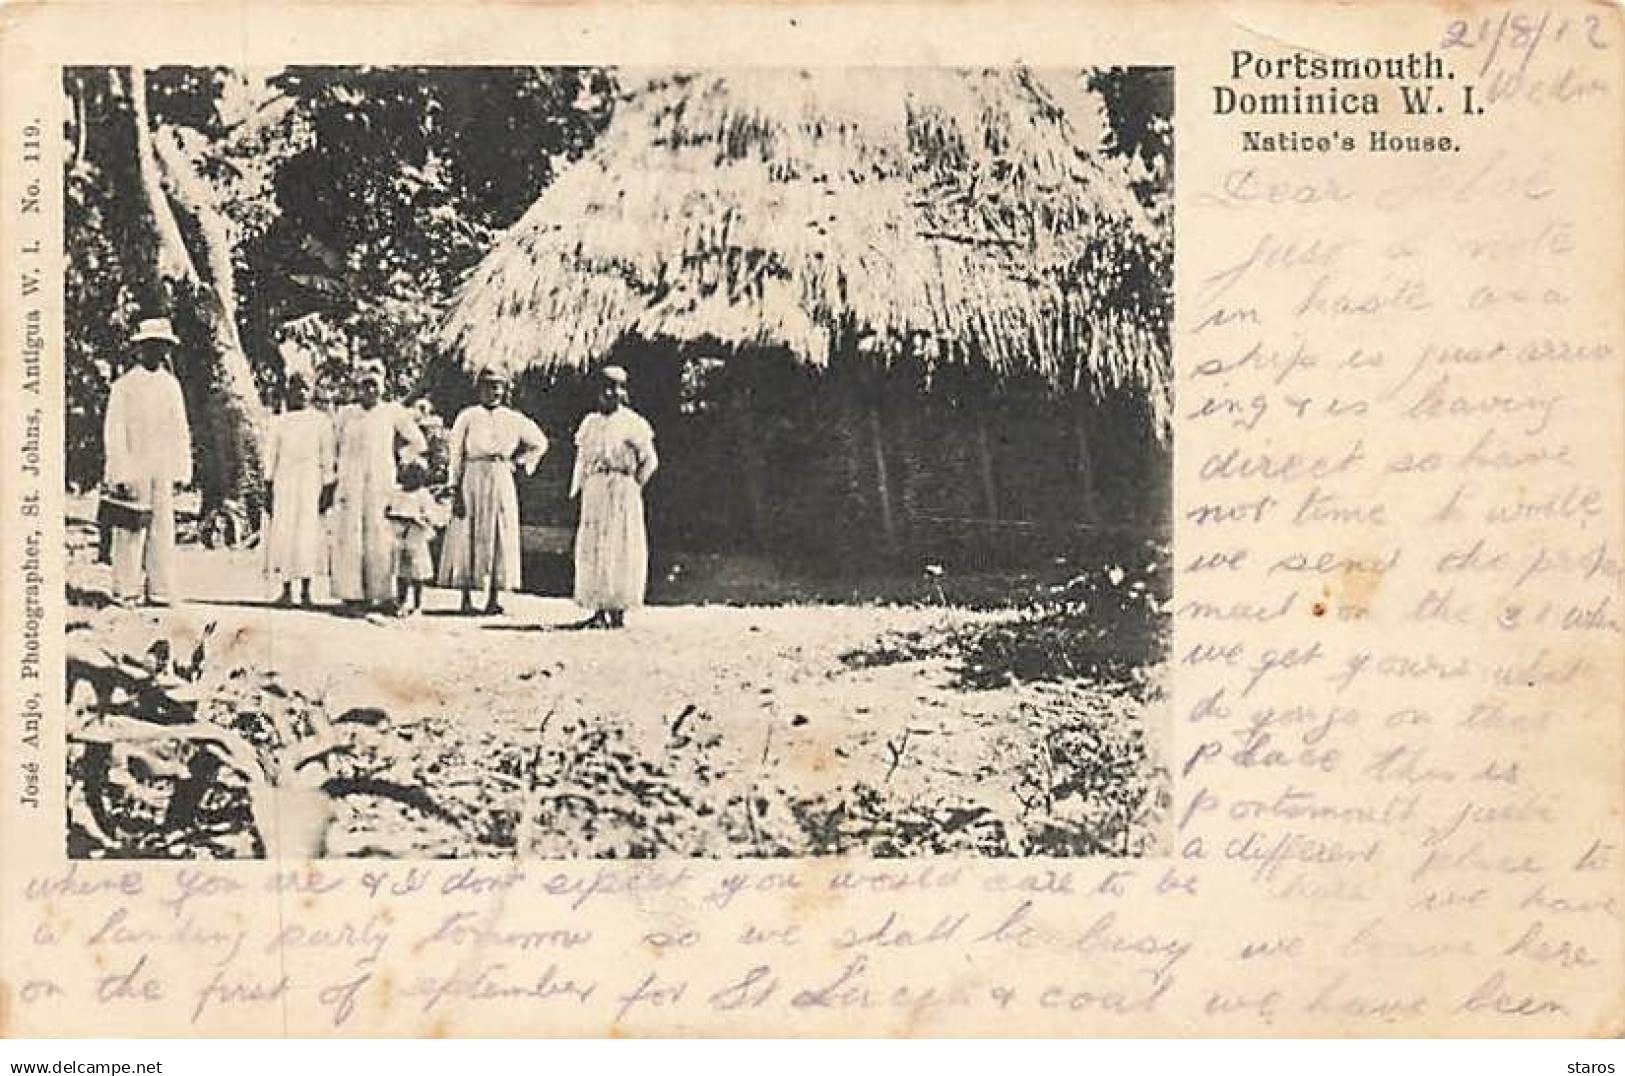 21/8/12
Portsmouth.
Dominica W. I.
Native's House.
José Anjo, Photographer, St. Johns, Antigua W. I. No. 119.
Dear
just a note
in haste as a
ship is just arriv
ing & is leaving
direct so have
not time to write
we send the
mail on the 31 when
we get yours what
do you go on that
place this is
portsmouth just
a different place to
where you are & I dont expect you would care to be here we have
a landing party tomorrow so we shall be busy we leave here
on the first of september for St Lucia & coal we have been
www.delcampe.net
staros